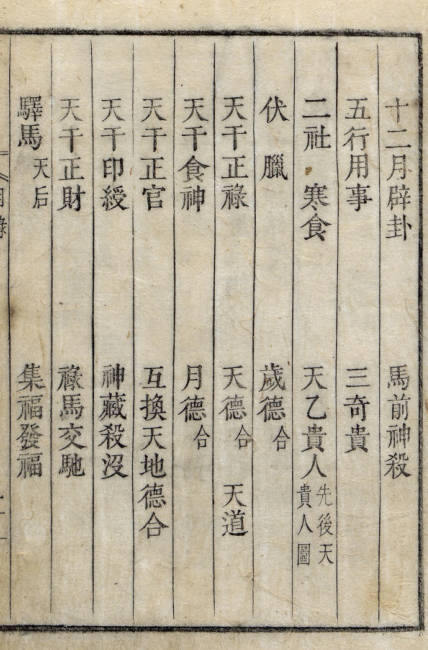 十二月辟卦　馬前神殺
五行用事　三奇貴
二社　寒食　天乙貴人先後天貴人圖
伏臘　歲德合
天干正祿　天德合　天道
天干食神　月德合
天干正官　互換天地德合
天干印綬　神藏殺沒
天干正財　祿馬交馳
驛馬天后　集福發福